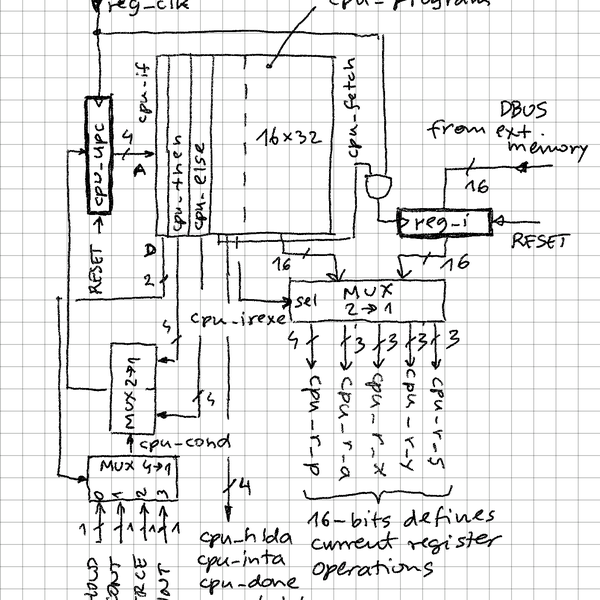 reg_clk
cpu_program
cpu_if
cpu_fetch
DBUS
from ext.
memory
16
cpu_upc
4
A
cpu_then
cpu_else
16x32
reg_i
RESET
RESET
D
2
16
16
sel
MUX
2→1
cpu_irexe
4
4
3
3
3
3
4
MUX2→1
4
cpu_r_p
cpu_r_a
cpu_r_x
cpu_r_y
cpu_r_s
cpu_cond
MUX 4→1
0
1
2
3
4
1
1
1
1
16-bits defines
current register
operations
cpu_hlda
cpu_inta
cpu_done